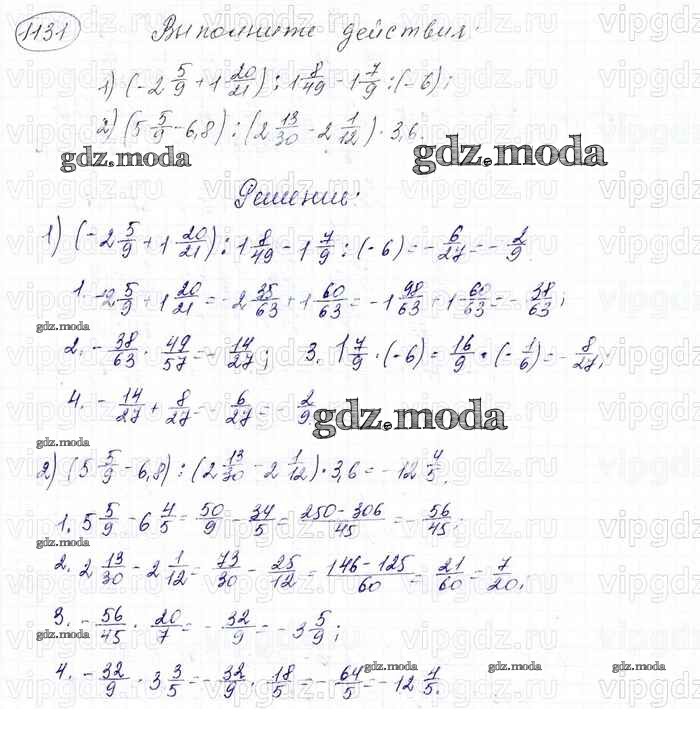 1131 Выполните действия:
1) (-2 5/9 + 1 20/21) : 1 8/49 - 1 7/9 : (-6);
2) (5 5/9 - 6,8) : (2 13/30 - 2 1/12) · 3,6.
gdz.moda
gdz.moda
Решение:
1) (-2 5/9 + 1 20/21) : 1 8/49 - 1 7/9 : (-6) = - 6/27 = - 2/9.
1. -2 5/9 + 1 20/21 = -2 35/63 + 1 60/63 = -1 98/63 + 1 60/63 = - 38/63;
gdz.moda
2. - 38/63 · 49/57 = - 14/27; 3. 1 7/9 · (-6) = 16/9 · (- 1/6) = - 8/27;
4. - 14/27 + 8/27 = - 6/27 = - 2/9.
gdz.moda
gdz.moda
2) (5 5/9 - 6,8) : (2 13/30 - 2 1/12) · 3,6 = -12 4/5.
1. 5 5/9 - 6 4/5 = 50/9 - 34/5 = 250-306/45 = - 56/45;
gdz.moda
2. 2 13/30 - 2 1/12 = 73/30 - 25/12 = 146-125/60 = 21/60 = 7/20;
3. - 56/45 · 20/7 = - 32/9 = -3 5/9;
gdz.moda
4. - 32/9 · 3 3/5 = - 32/9 · 18/5 = - 64/5 = -12 4/5.
gdz.moda
gdz.moda
gdz.moda
gdz.moda